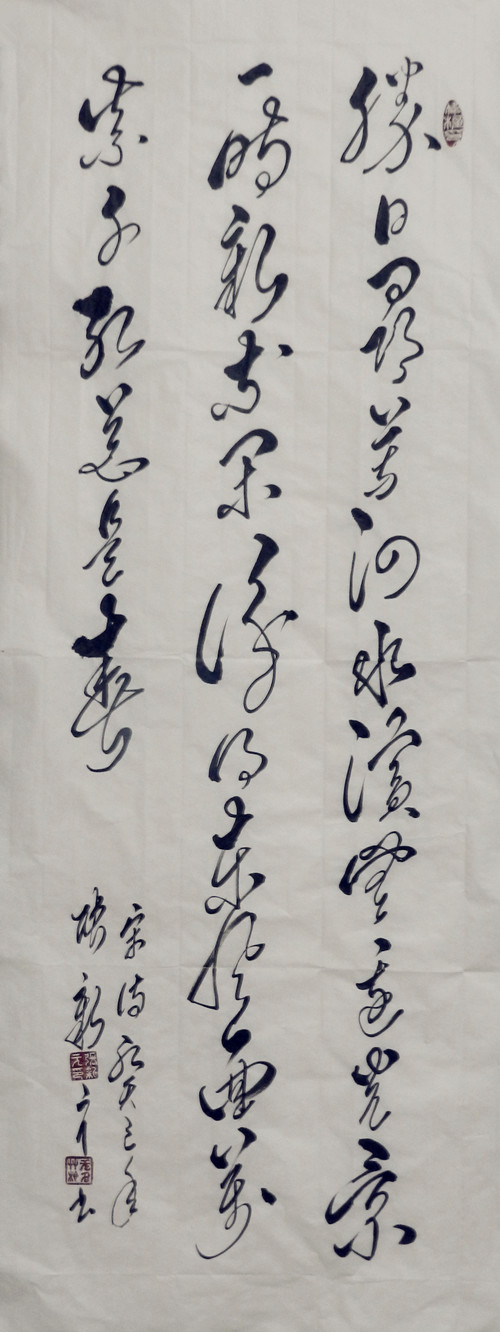 勝日尋芳泗水濱無邊光景
一時新等閒識得東風面萬
紫千紅總是春
宋詩癸巳年
新 书